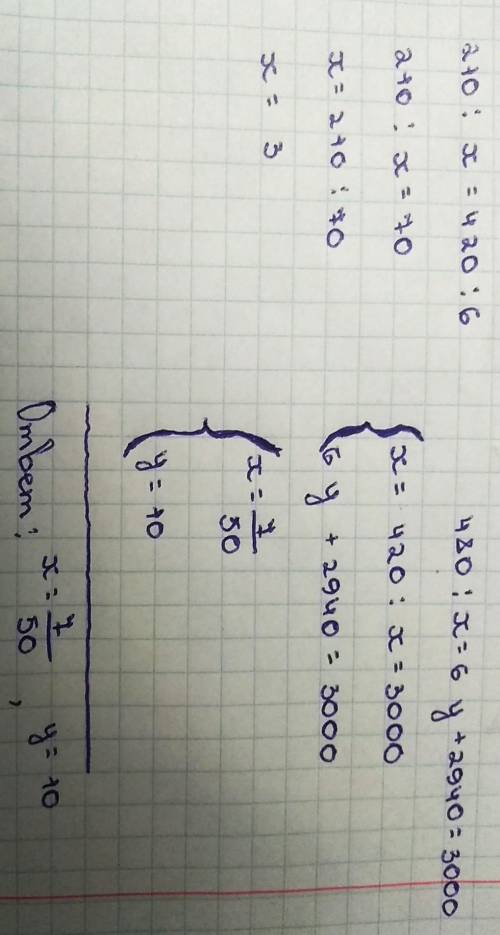 210 : x = 420 : 6
210 : x = 70
x = 210 : 70
x = 3
480 : x = 6 y + 2940 = 3000
{ x = 420 : x = 3000
6 y + 2940 = 3000
{ x = 7/50
y = 10
Ответ: x = 7/50, y = 10